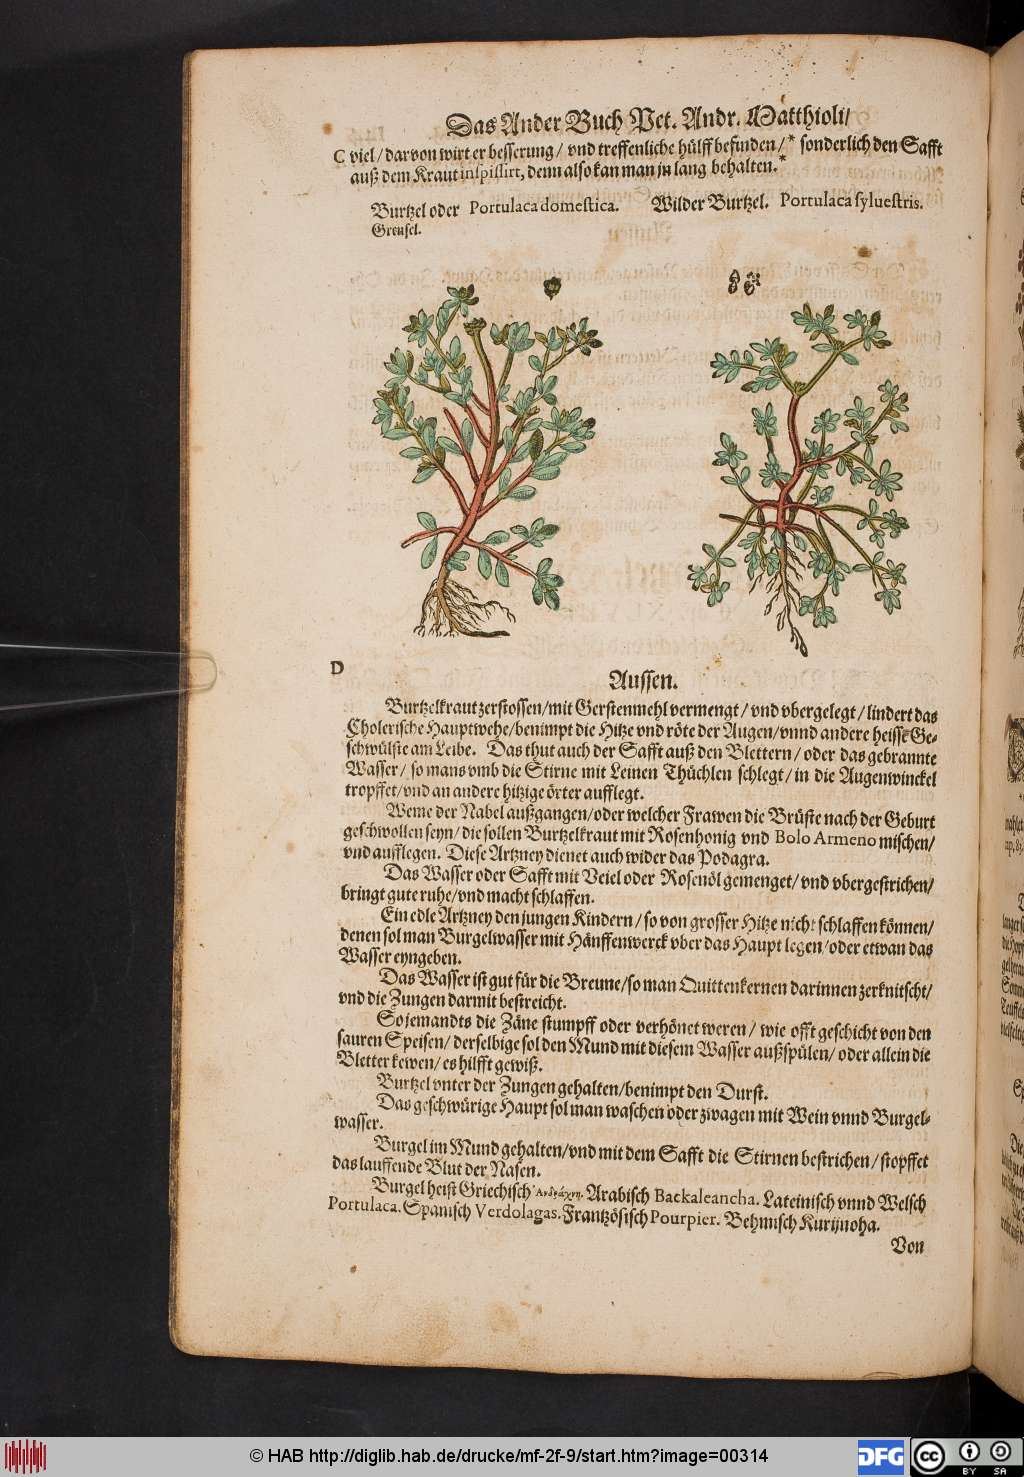 Das Ander Buch Pet. Andr. Matthioli/
C viel/darvon wirt er besserung/vnd treffenliche hülff befinden/* sonderlich den Safft
auß dem Kraut inspissirt, denn also kan man jn lang behalten.*
Burtzel oder Portulaca domestica. Wilder Burtzel. Portulaca syluestris.
Grensel.
D
Aussen.
Burtzelkraut zerstossen/mit Gerstenmehl vermengt/vnd vbergelegt/lindert das
Cholerische Hauptwehe/benimpt die Hitze vnd röte der Augen/vnnd andere heisse Ge-
schwülste am Leibe. Das thut auch der Safft auß den Blettern/oder das gebrannte
Wasser/so mans vmb die Stirne mit Leinen Thüchlen schlegt/in die Augenwinckel
tropffet/vnd an andere hitzige örter aufflegt.
Weme der Nabel außgangen/oder welcher Frawen die Brüste nach der Geburt
geschwollen seyn/die sollen Burtzelkraut mit Rosenhonig vnd Bolo Armeno mischen/
vnd aufflegen. Diese Artzney dienet auch wider das Podagra.
Das Wasser oder Safft mit Veiel oder Rosenöl gemenget/vnd vbergestrichen/
bringt gute ruhe/vnd macht schlaffen.
Ein edle Artzney den jungen Kindern/so von grosser Hitze nicht schlaffen können/
denen sol man Burgelwasser mit Hänffenwerck vber das Haupt legen/oder etwan das
Wasser eyngeben.
Das Wasser ist gut für die Breune/so man Quittenkernen darinnen zerknitscht/
vnd die Zungen darmit bestreicht.
So jemandts die Zäne stumpff oder verhönet weren/wie offt geschicht von den
sauren Speisen/derselbige sol den Mund mit diesem Wasser außspülen/oder allein die
Bletter kewen/es hilfft gewiß.
Burtzel vnter der Zungen gehalten/benimpt den Durst.
Das geschwürige Haupt sol man waschen oder zwagen mit Wein vnnd Burgel-
wasser.
Burgel im Mund gehalten/vnd mit dem Safft die Stirnen bestrichen/stopffet
das lauffende Blut der Nasen.
Burgel heist Griechisch Ἀνδράχνη. Arabisch Backaleancha. Lateinisch vnnd Welsch
Portulaca. Spanisch Verdolagas. Frantzösisch Pourpier. Behmisch Kurijnoha.
Von
© HAB http://diglib.hab.de/drucke/mf-2f-9/start.htm?image=00314
DFG
cc BY SA